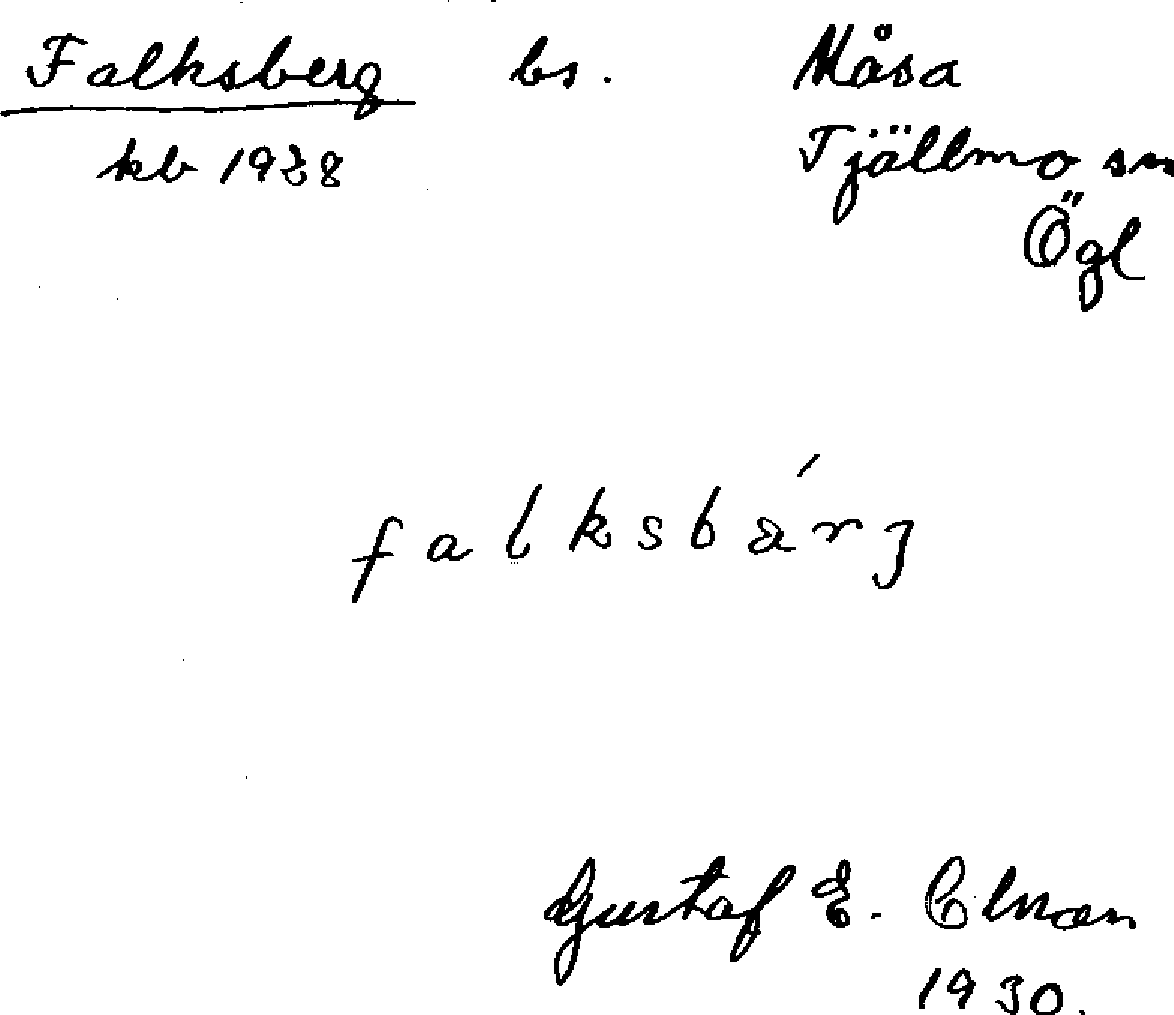 Falksberg bs. Måsa
kb 1928 Tjällmo sn
Ögl
falksbärj
Gustaf E.
1930.